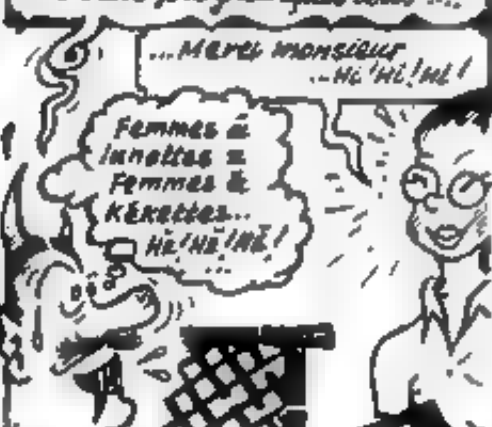 ...Merci monsieur
...Hi!Hi!Hi!
Femmes à
lunettes =
Femmes à
kékettes...
Hé!Hé!Hé!
...